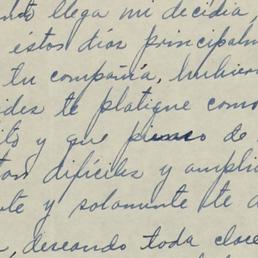 llega mi decidia,
éstos días principalm
tu compañía, hubier
ides te platique como
y que pienso de
tan difíciles y amplio
te y solamente te d
, deseando toda clase